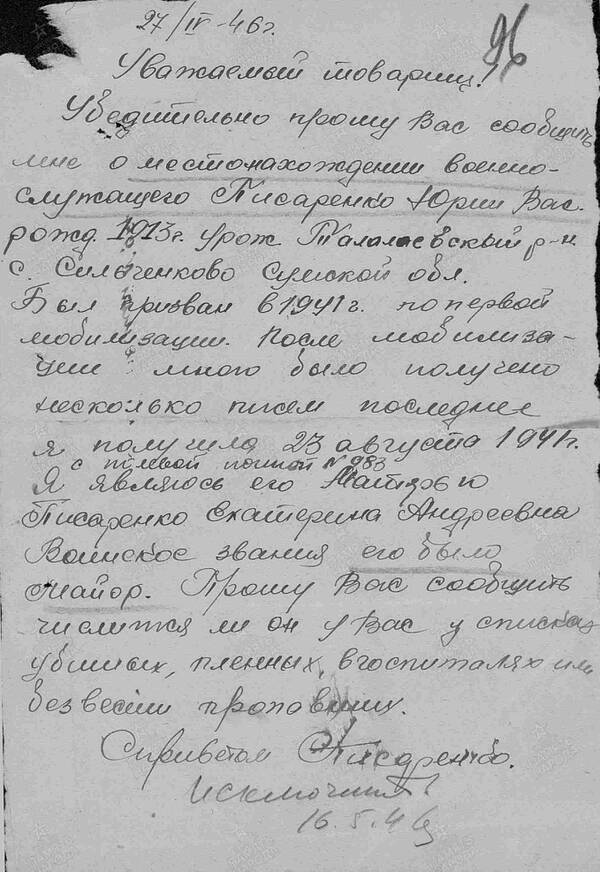 27/IV-46г.
96
Уважаемый товарищ!
Убедительно прошу Вас сообщить
мне о местонахождении военно-
служащего Писаренко Юрии Вас.
рожд. 1913г. урож Талалаевский р-н
с. Сильченково Сумской обл.
Был призван в 1941г. по первой
мобилизации. После мобилиза-
ции много было получено
несколько писем последнее
я получила 23 августа 1941г.
с полевой почтой № 983
Я являюсь его Матірью
Писаренко Екатерина Андреевна
Воинское звания его было
майор. Прошу Вас сообщить
числится ли он у Вас у списках
убитых, пленных, в госпиталях или
без вести пропавших.
С приветом Писаренко.
16.5.46